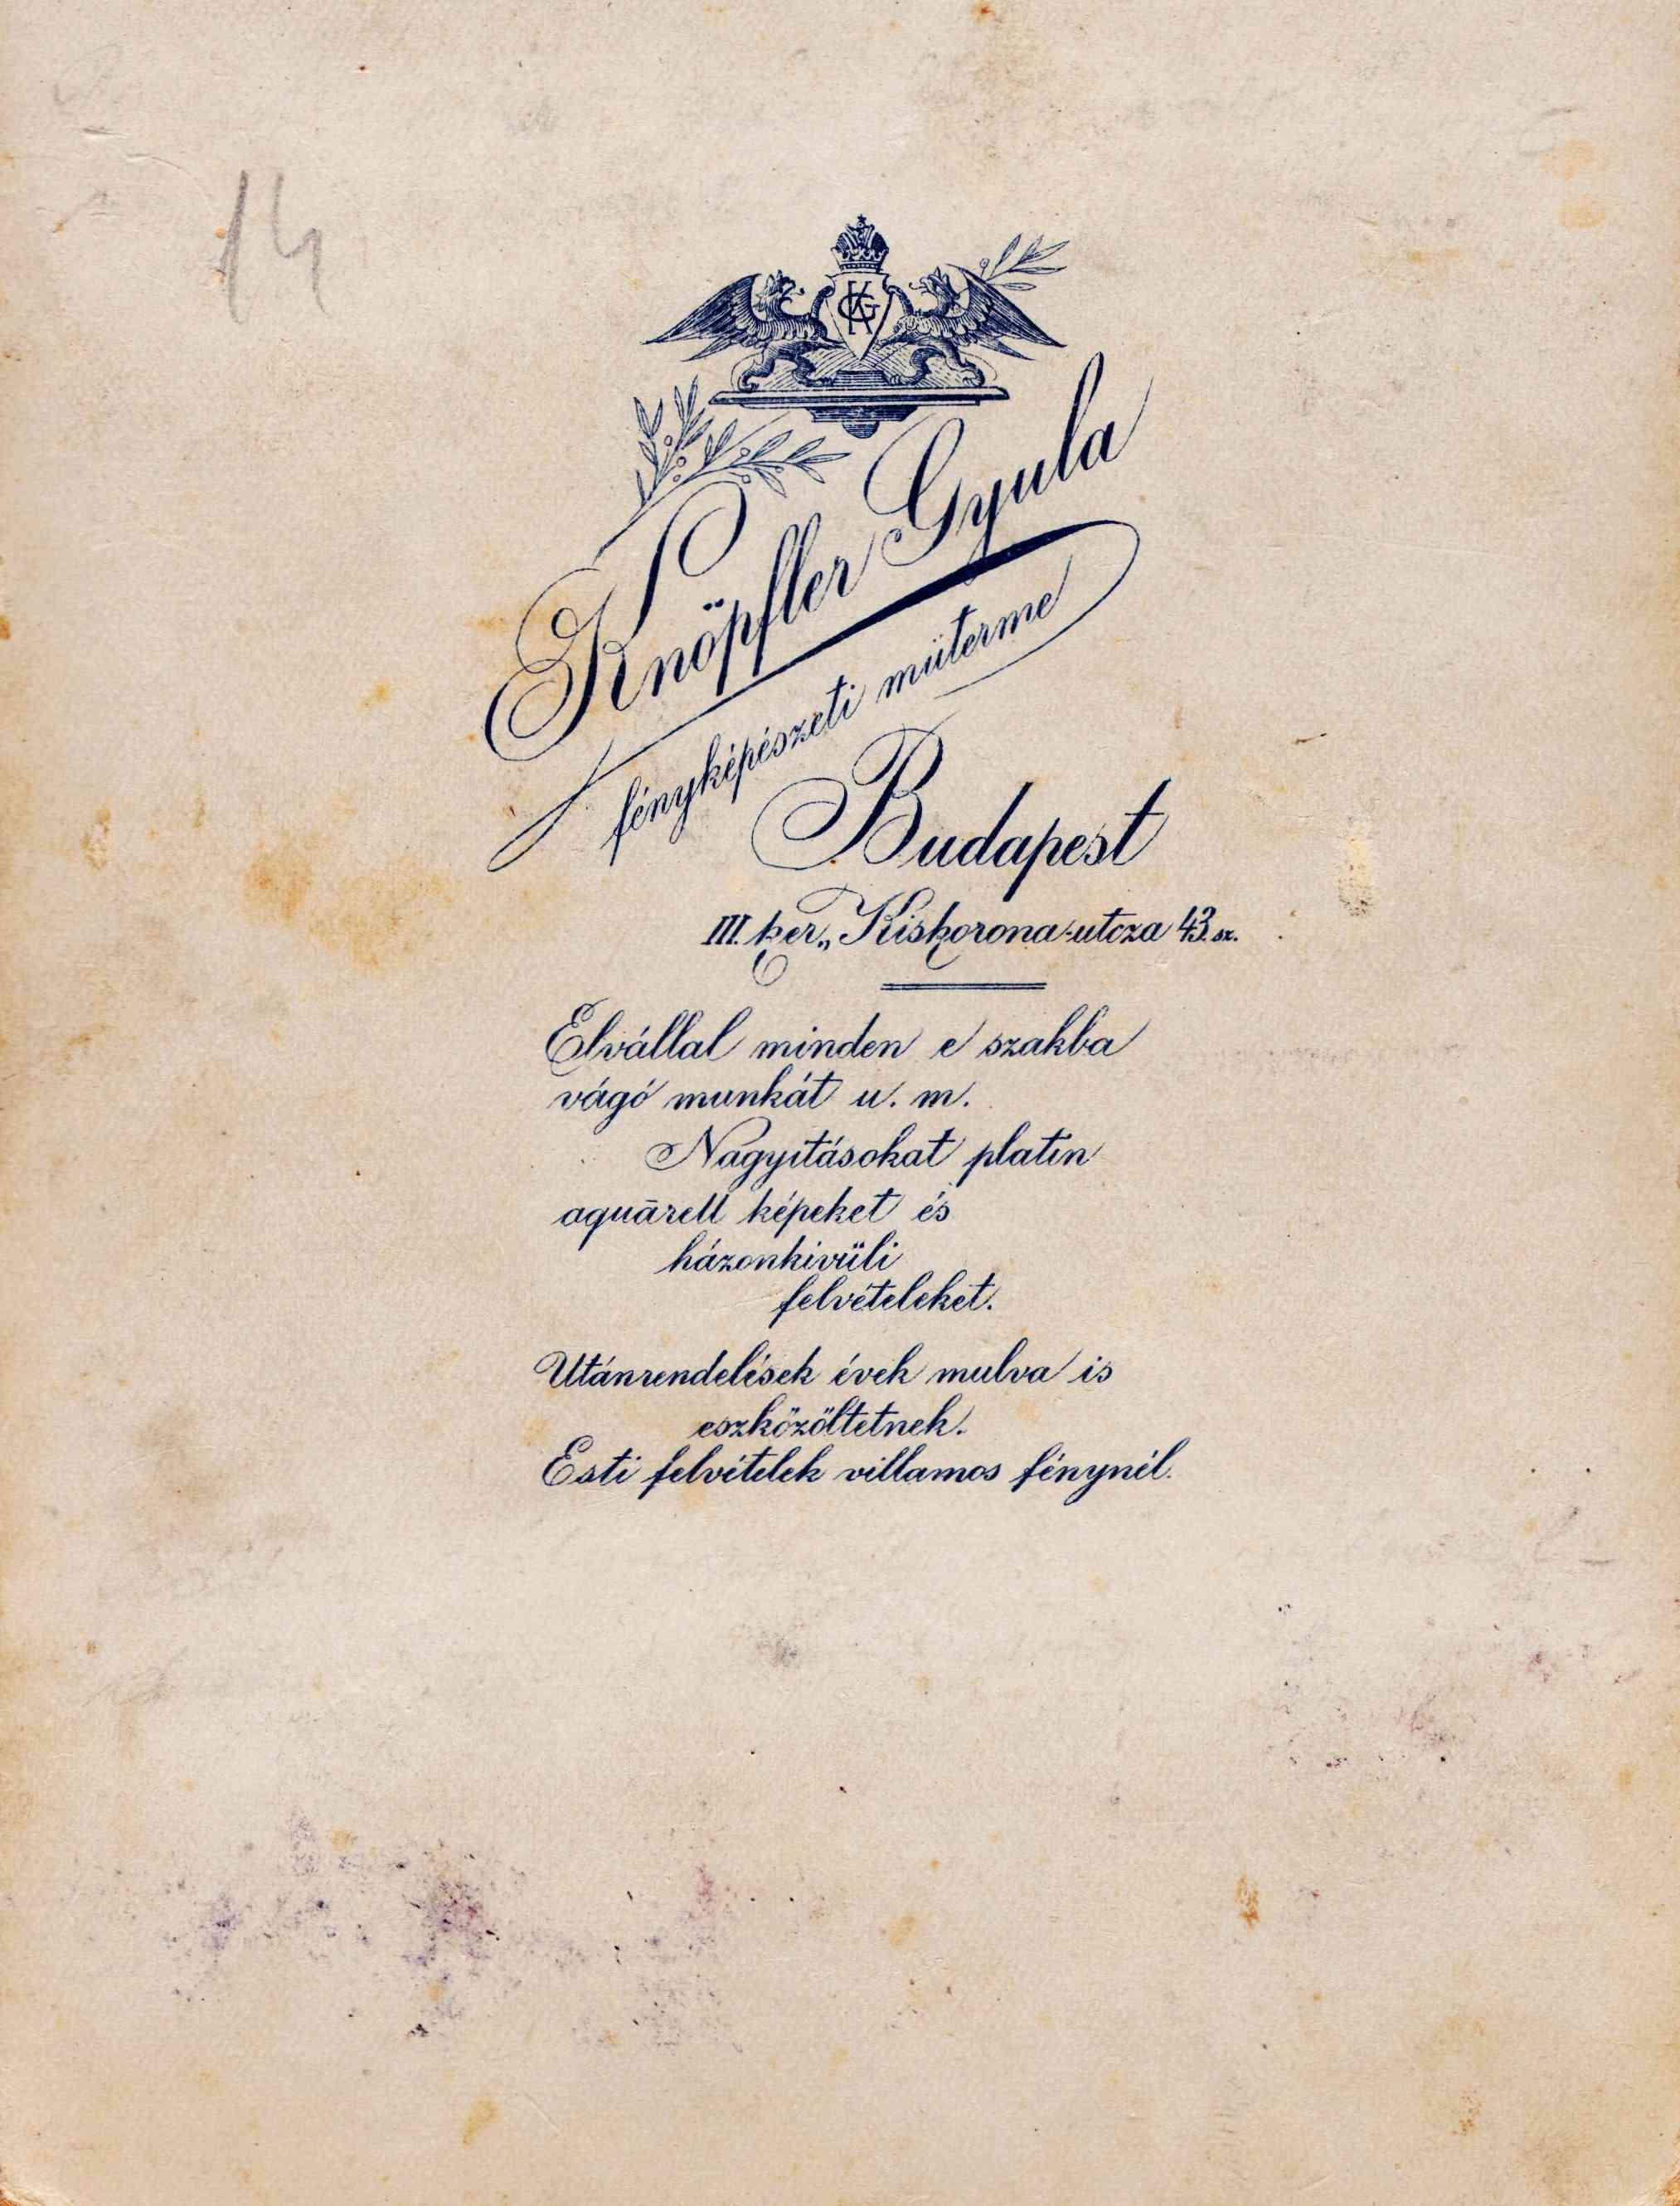 14
KG
Knöpfler Gyula
fényképészeti müterme
Budapest
III. ker., Kiskorona-utcza 43. sz.
Elvállal minden e szakba
vágó munkát u. m.
Nagyitásokat platin
aquārell képeket és
házonkivüli
felvételeket.
Utánrendelések évek mulva is
eszközöltetnek.
Esti felvételek villamos fénynél.